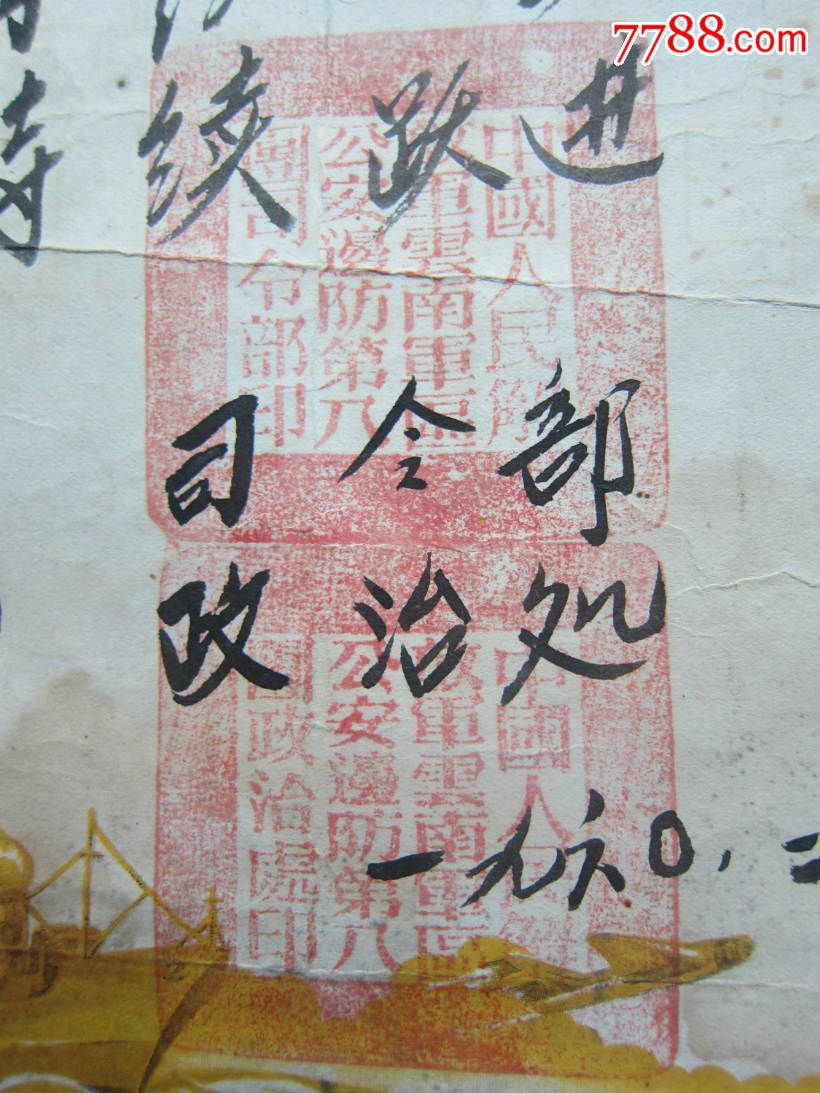 7788.com
续跃进
司令部
政治处
一九六〇.二
中國人民解
放軍雲南軍區
公安邊防第八
團司令部印
中國人民解
放軍雲南軍區
公安邊防第八
團政治處印